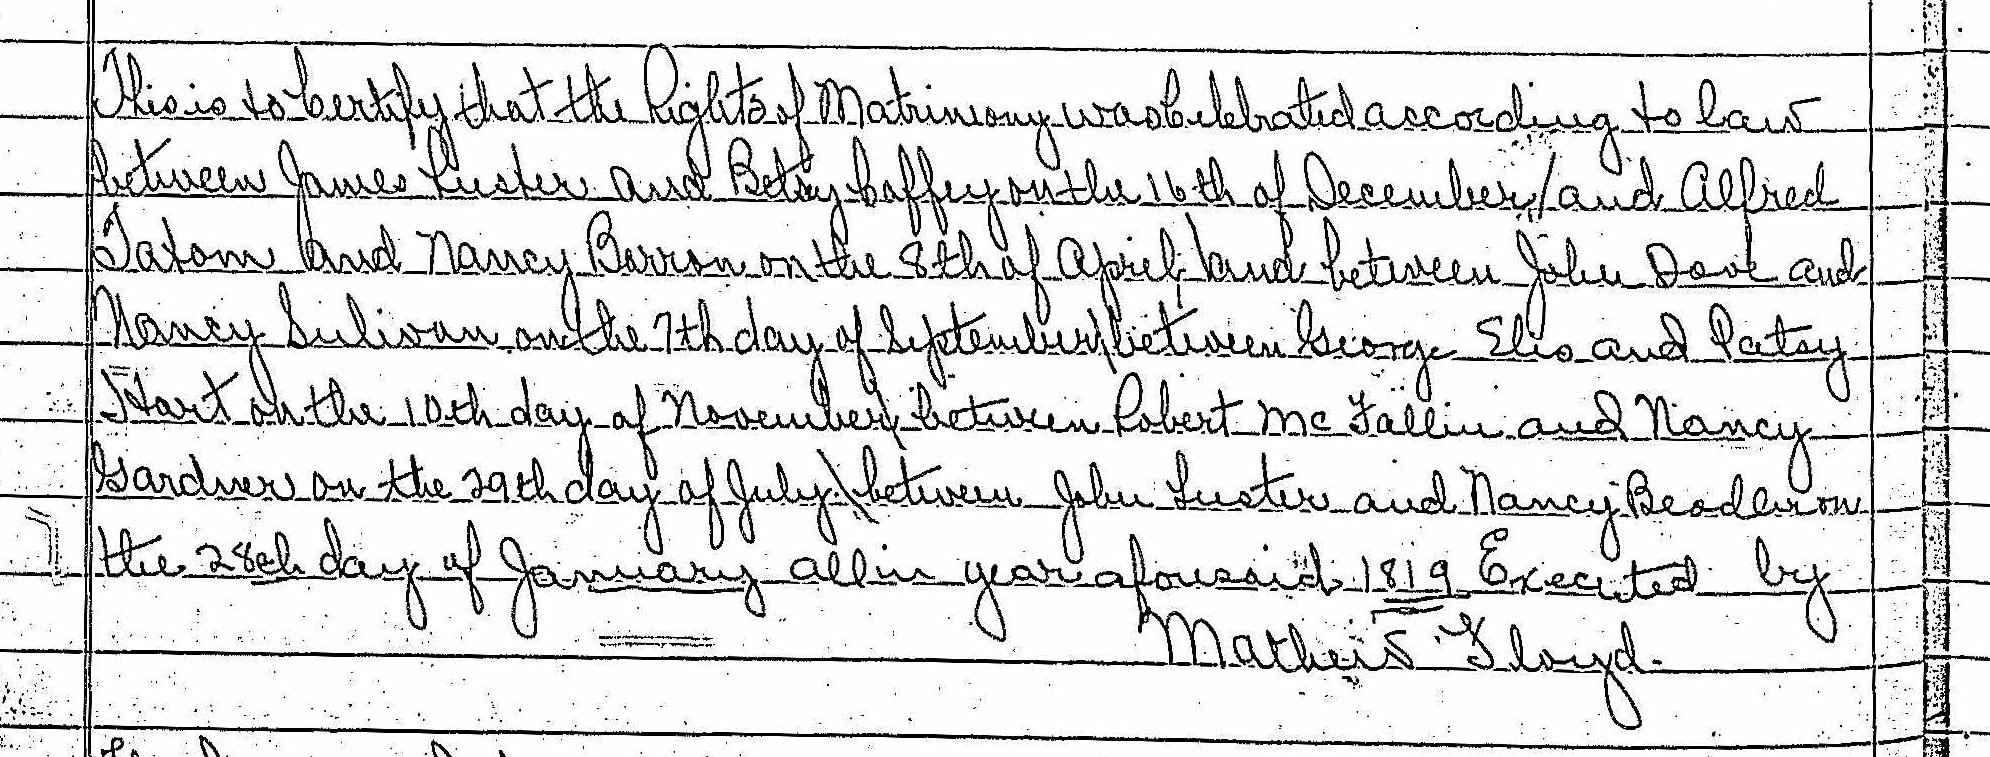 This is to Certify that the Rights of Matrimony was Celebrated according to law
between James Luster and Betsy Caffey on the 16th of December / and Alfred
Tatom and Nancy Barron on the 8th of April \ and between John Dove and
Nancy Sulivan on the 7th day of September \ between George Elis and Patsy
Hart on the 10th day of November \ between Robert McFallin and Nancy
Gardner on the 29th day of July \ between John Luster and Nancy on
the 28th day of January all in year aforesaid 1819 Executed by
Matheis Floyd.